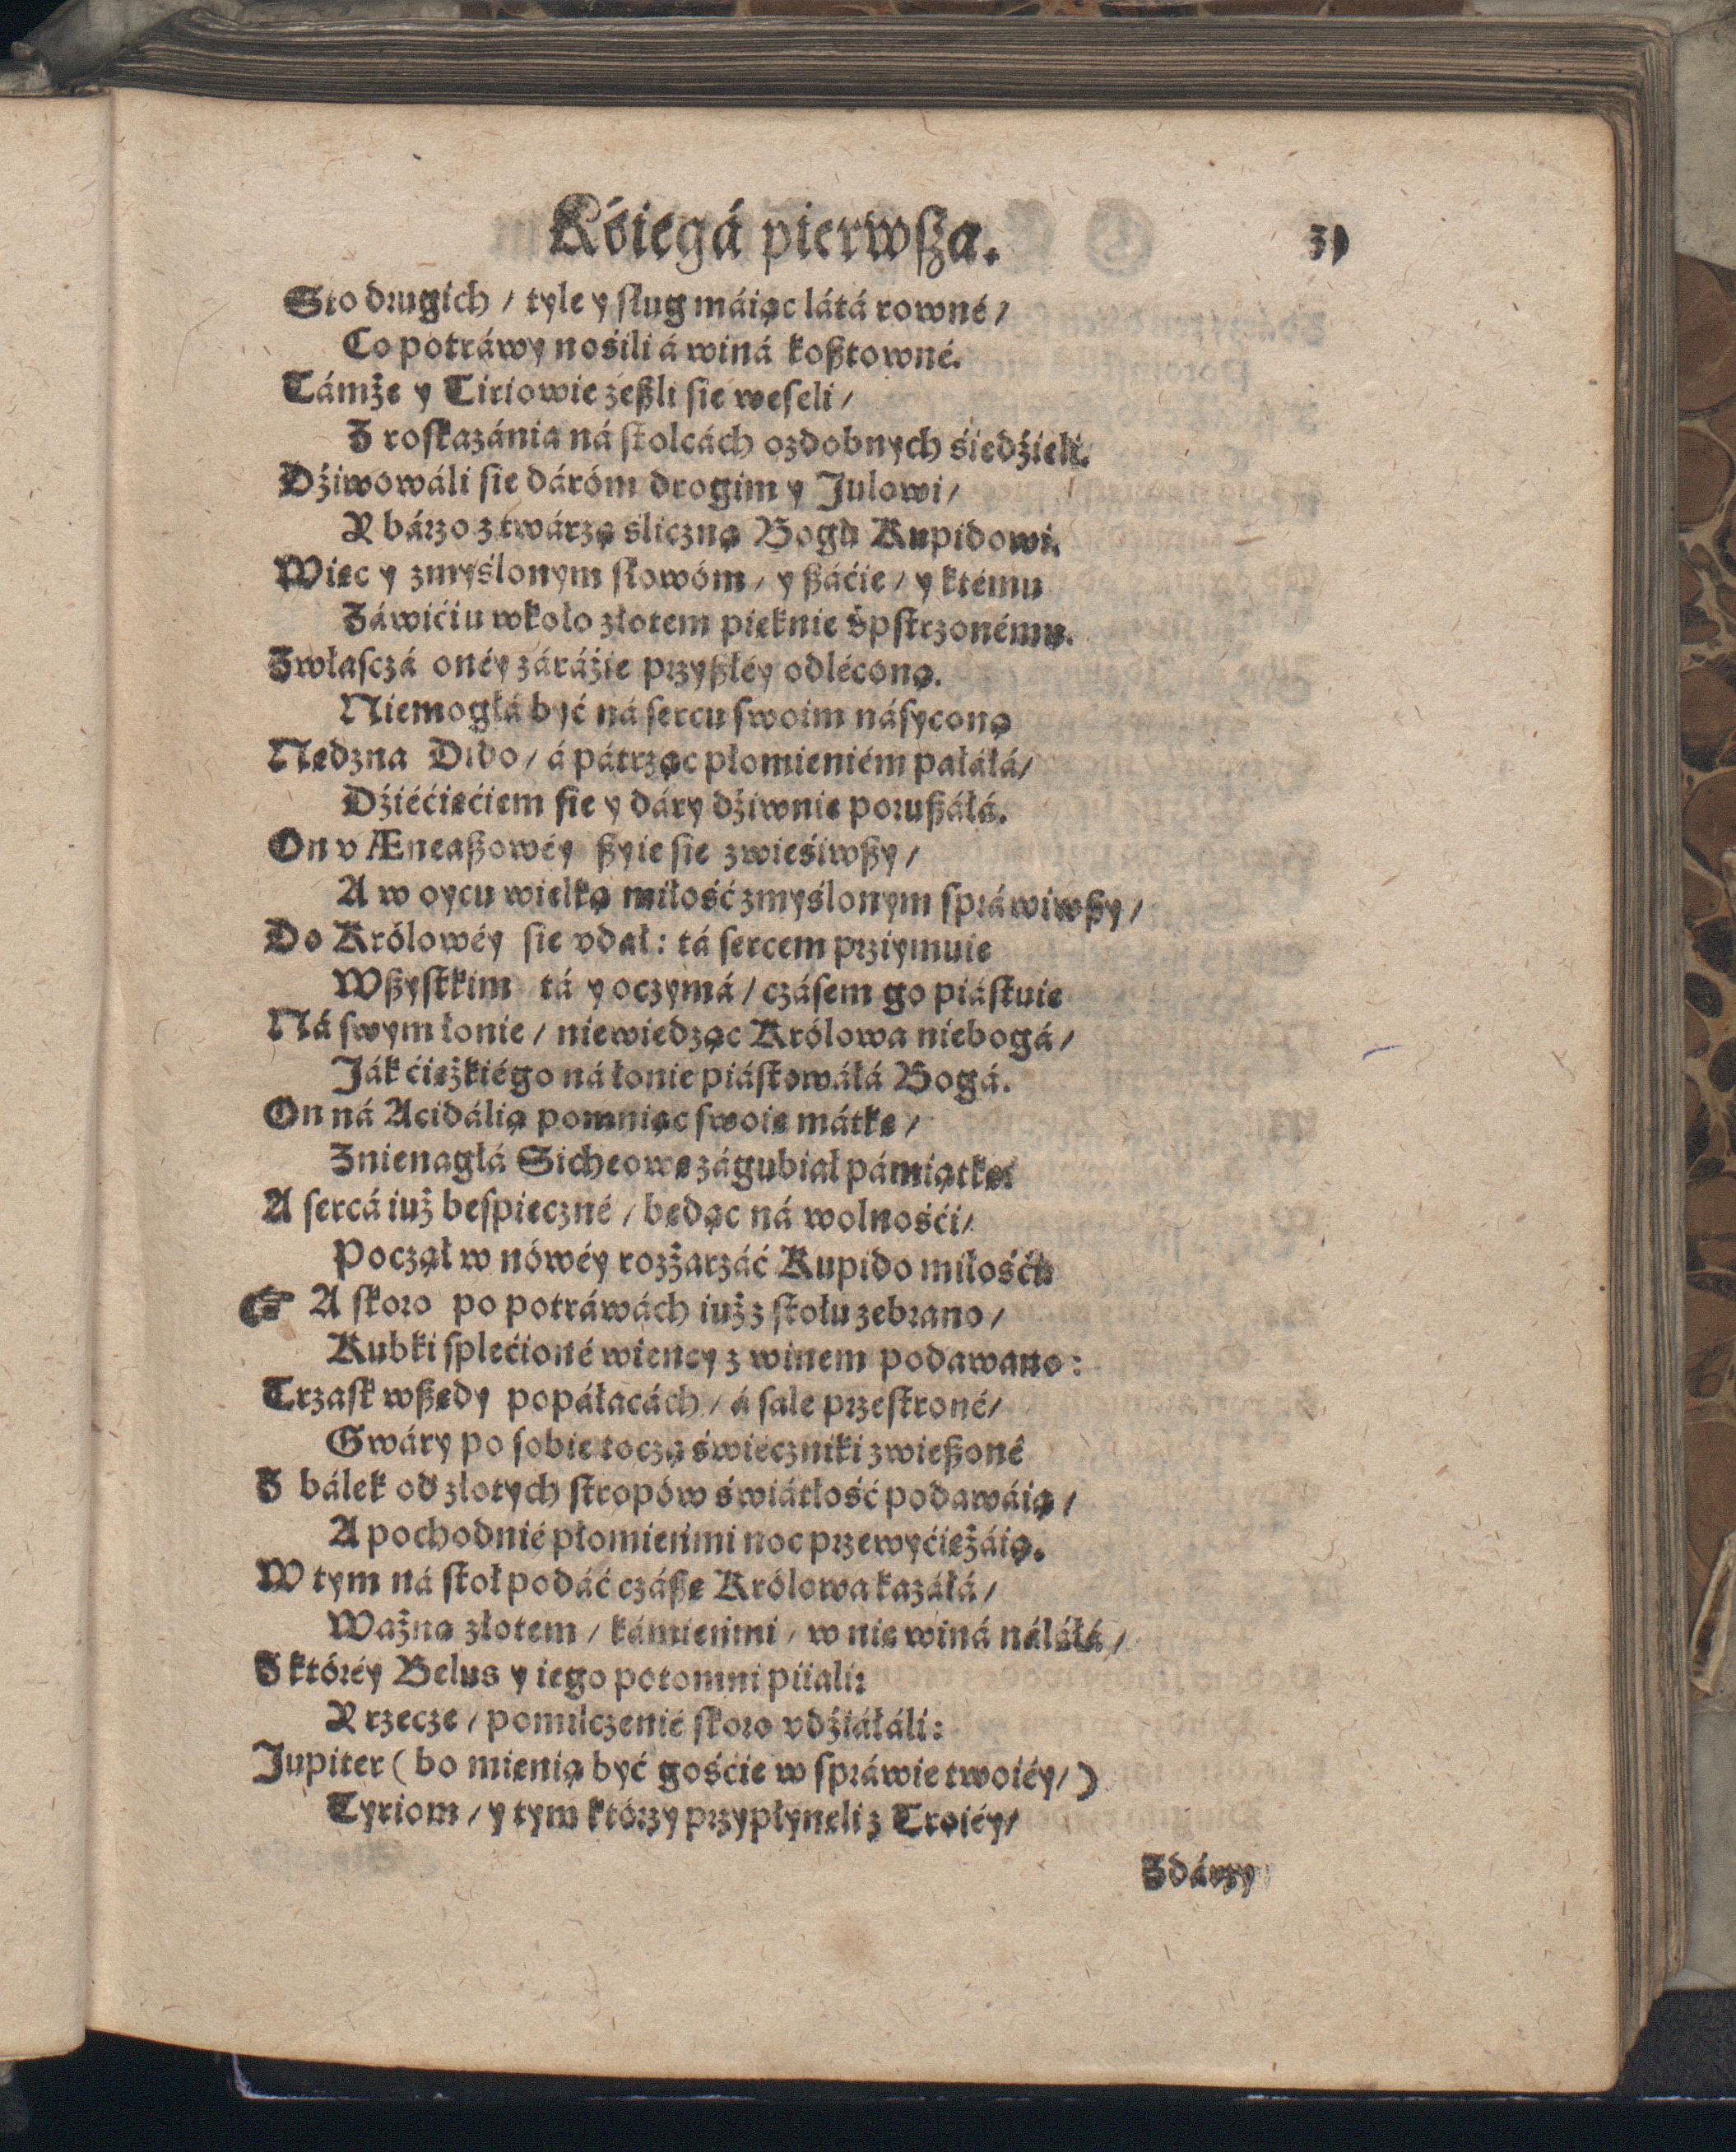 Kśięgá pierwſza. 39
Sto drugich / tyle y ſług máiąc látá rowné /
Co potráwy nośili á winá koßtowné.
Támże y Tiriowie zeßli ſie weſeli /
Z roſkazánia ná ſtolcách ozdobnych śiedźieli.
Dźiwowáli ſie dáróm drogim y Julowi /
Y bárzo z twárzą śliczną Bogu Kupidowi.
Więc y zmyślonym ſłowóm / y ßáćie / y ktému
Záwićiu wkoło złotem pięknie vpſtrzonému.
Zwłaſczá onéy záráźie przyßłéy odlécóną.
Niemogłá być ná ſercu ſwoim náſyconą
Nędzna Dido / á pátrząc płomieniém pałáłá /
Dźiéćięćiem ſie y dáry dźiwnie porußáłá.
On v Æneaßowéy ßyie ſie zwieśiwßy /
A w oycu wielką miłość zmyślonym ſpráwiwßy /
Do Królowéy ſie vdał: tá ſercem prziymuie
Wßyſtkim tá y oczymá / czáſem go piáſtuie
Ná ſwym łonie / niewiedząc Królowa niebogá /
Ják ćiężkiégo ná łonie piáſtowáłá Bogá.
On ná Acidálią pomniąc ſwoię mátkę /
Znienagłá Sicheowę zágubiał pámiątkę:
A ſercá iuż beſpieczné / będąc ná wolnośći /
Począł w nówéy rozżarzáć Kupido miłośći.
☞ A ſkoro po potráwách iuż z ſtołu zebrano /
Kubki ſplećioné wieńcy z winem podawano:
Trzaſk wßędy po páłacách / á ſale przeſtroné /
Gwáry po ſobie toczą świeczniki zwießoné
Z bálek od złotych ſtropów świátłość podawáią /
A pochodnié płomieńmi noc przewyćiężáią.
W tym ná ſtoł podáć czáßę Królowa kazáłá /
Ważną złotem / kámieńmi / w nię winá náláłá /
Z któréy Belus y iego potomni piiali:
Y rzecze / pomilczenié ſkoro vdźiáłáli:
Jupiter ( bo mienią być gośćie w ſpráwie twoiéy / )
Tyriom / y tym którzy przypłynęli z Troiéy /
Zdárzy